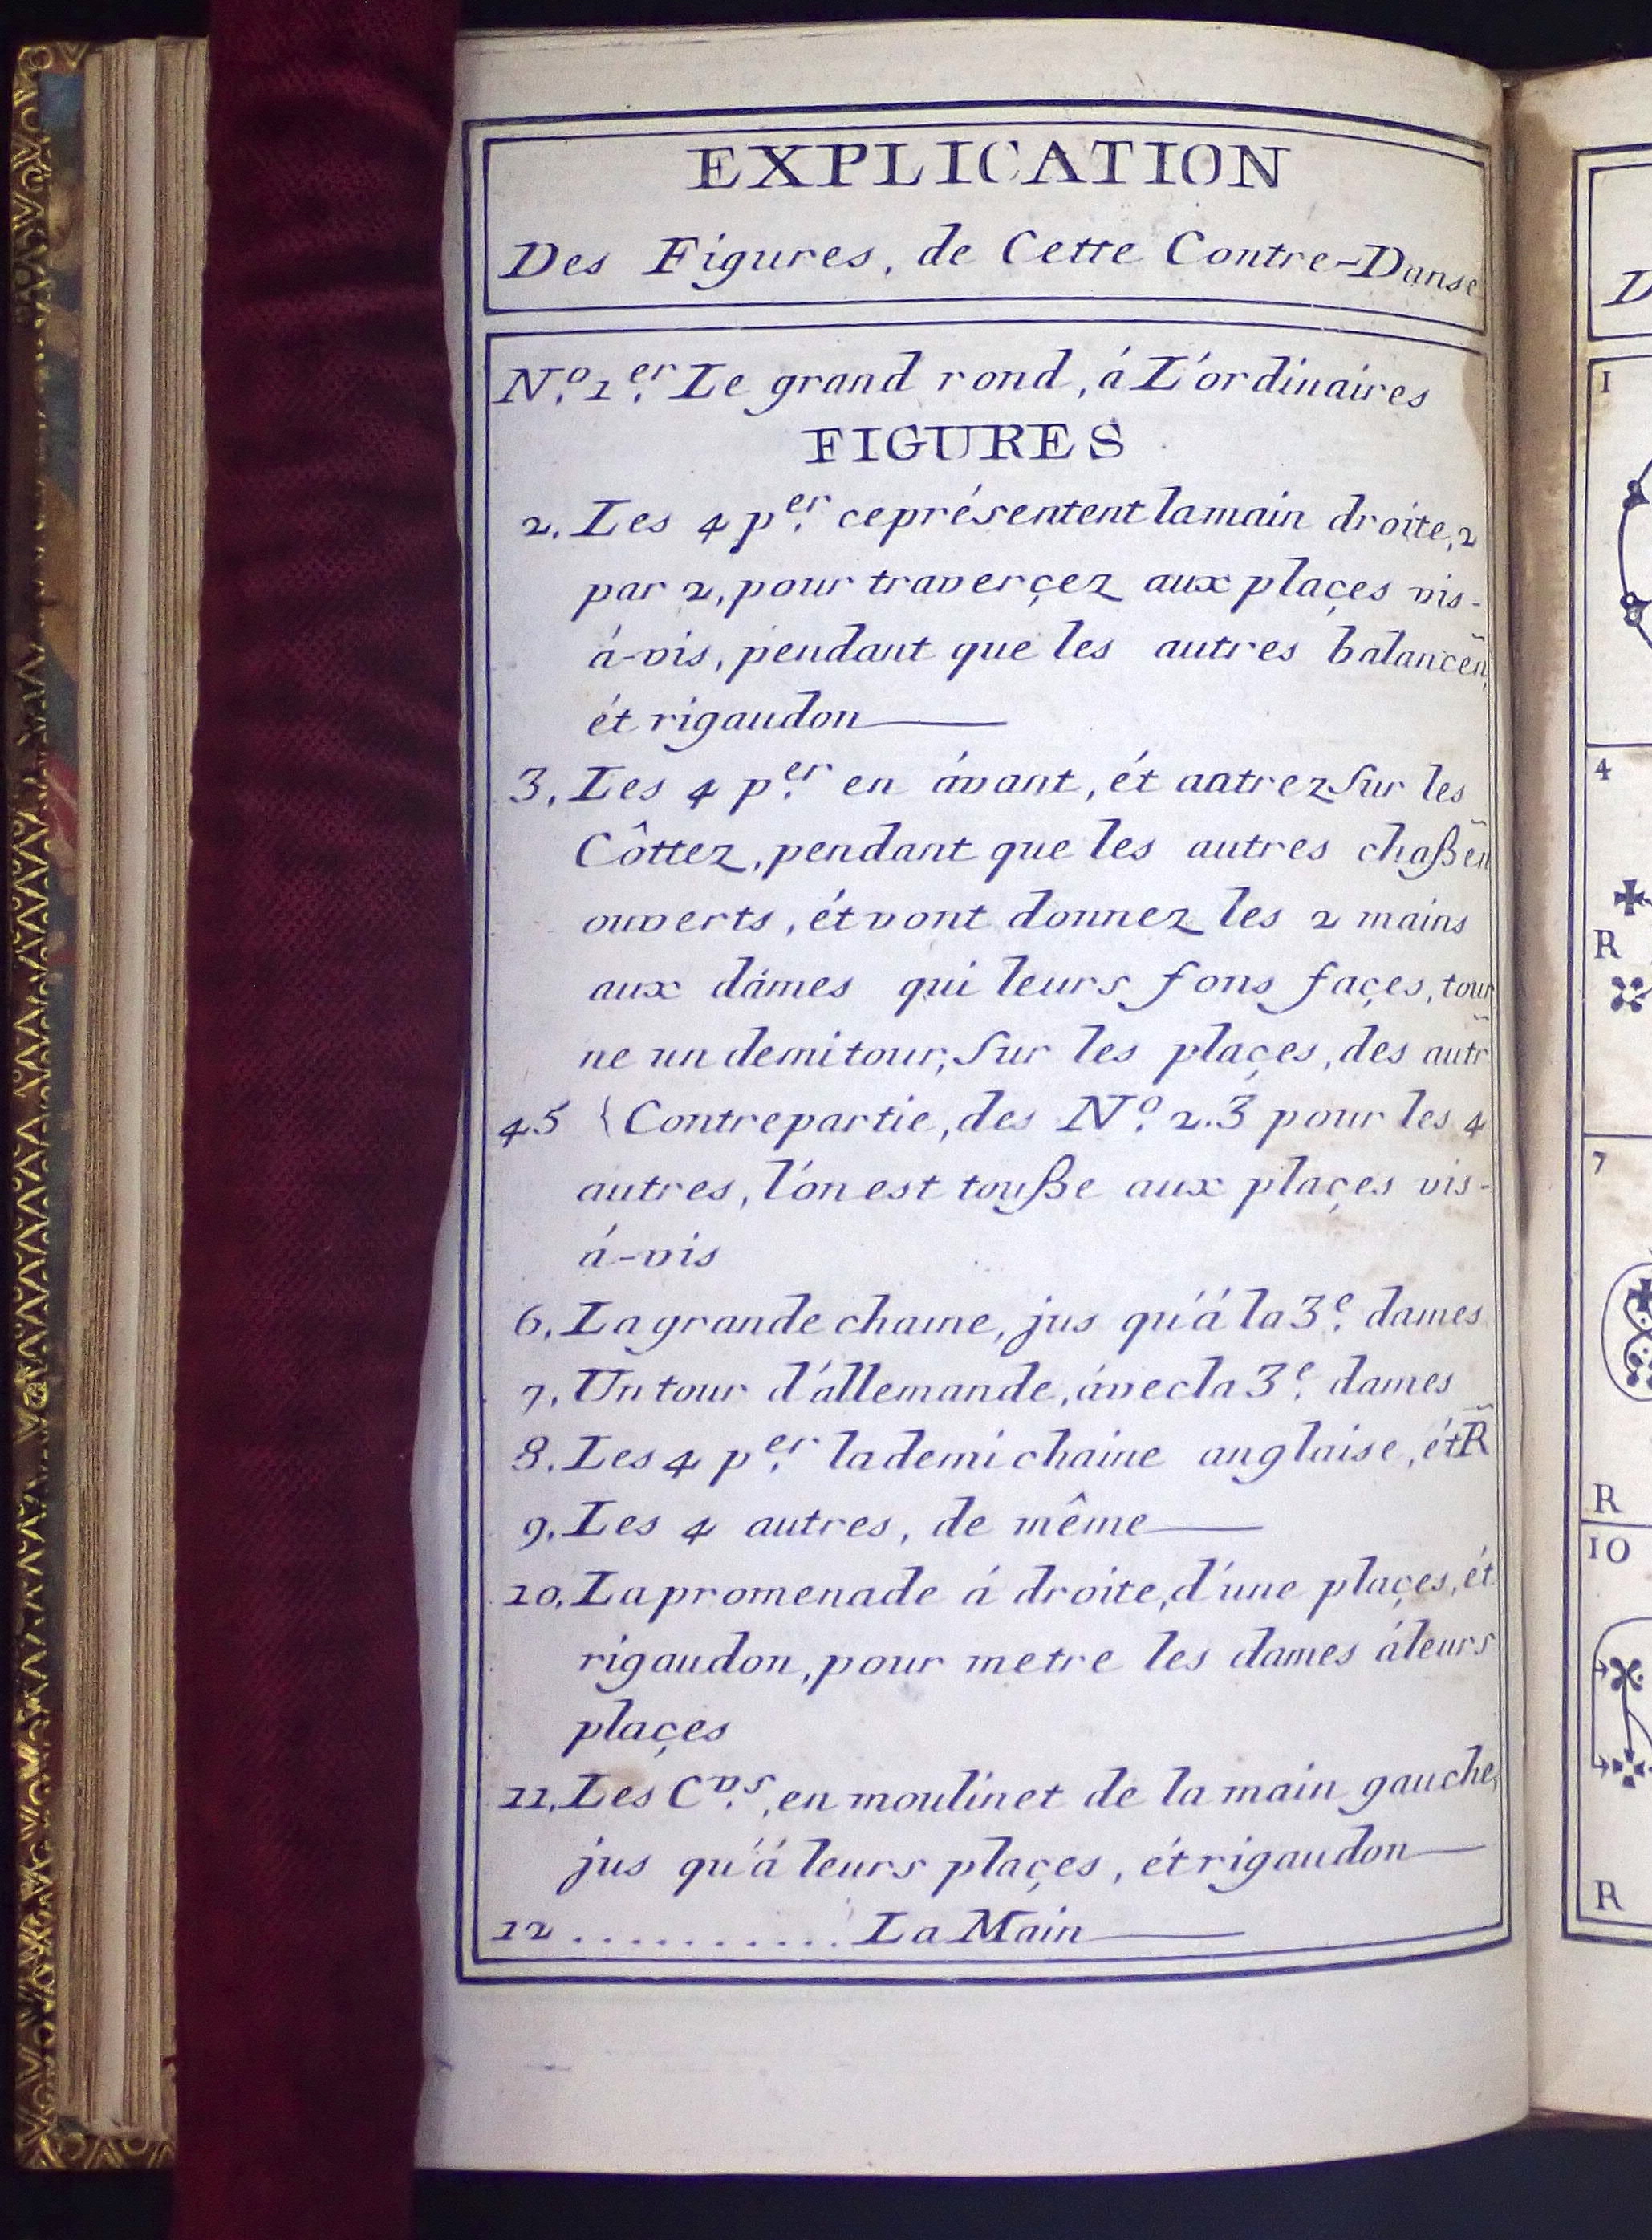 EXPLICATION
Des Figures, de Cette Contre-Danse
N.º 1.er Le grand rond, á L'ordinaires
FIGURES
2. Les 4 p.er ceprésentent lamain droite, 2
par 2, pour traverçez aux plaçes vis-
á-vis, pendant que les autres balancen̄,
ét rigaudon
3. Les 4 p.er en ávant, ét aatrez Sur les
Côttez, pendant que les autres chaßen̄
ouverts, ét vont donnez les 2 mains
aux dámes qui leurs fons façes, tour
ne un demitour, Sur les plaçes, des autr̄
4 5 { Contrepartie, des N.º 2.3 pour les 4
autres, l'ón est touße aux plaçes vis-
á-vis
6. La grande chaine, jus qu'á la 3.e dames
7. Un tour d'állemande, ávec la 3.e dames
8. Les 4 p.er la demi chaine anglaise, ét R̄
9. Les 4 autres, de même
10. La promenade á droite, d'une plaçes, ét
rigaudon, pour metre les dames á leurs
plaçes
11. Les C.vs, en moulinet de la main gauche,
jus qu'á leurs plaçes, ét rigaudon
12 .......... La Main
D
1
4
R
7
R
10
R